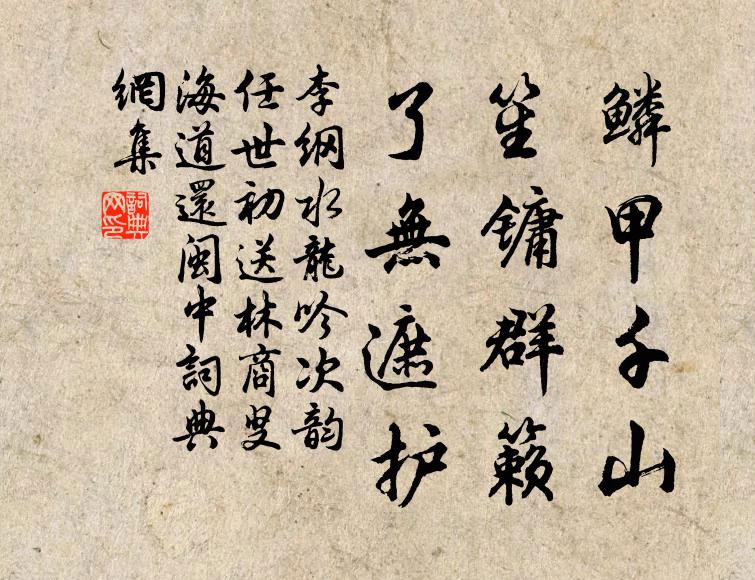 鳞甲千山
笙镛群籁
了無遮护
李纲水龍吟次韵
任世初送林商叟
海道還闽中詞典
網集
詞典網印